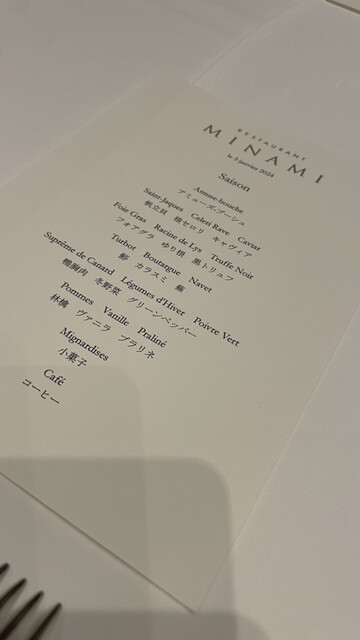 RESTAURANT
MINAMI
le 3 janvier 2024
Saison
Amuse-bouche
アミューズ・ブーシュ
Saint-Jaques Celeri Rave Caviar
帆立貝 根セロリ キャヴィア
Foie Gras Racine de Lys Truffe Noir
フォアグラ ゆり根 黒トリュフ
Turbot Boutargue Navet
鮃 カラスミ 蕪
Suprême de Canard Légumes d'Hiver Poivre Vert
鴨胸肉 冬野菜 グリーンペッパー
Pommes Vanille Praliné
林檎 ヴァニラ プラリネ
Mignardises
小菓子
Café
コーヒー